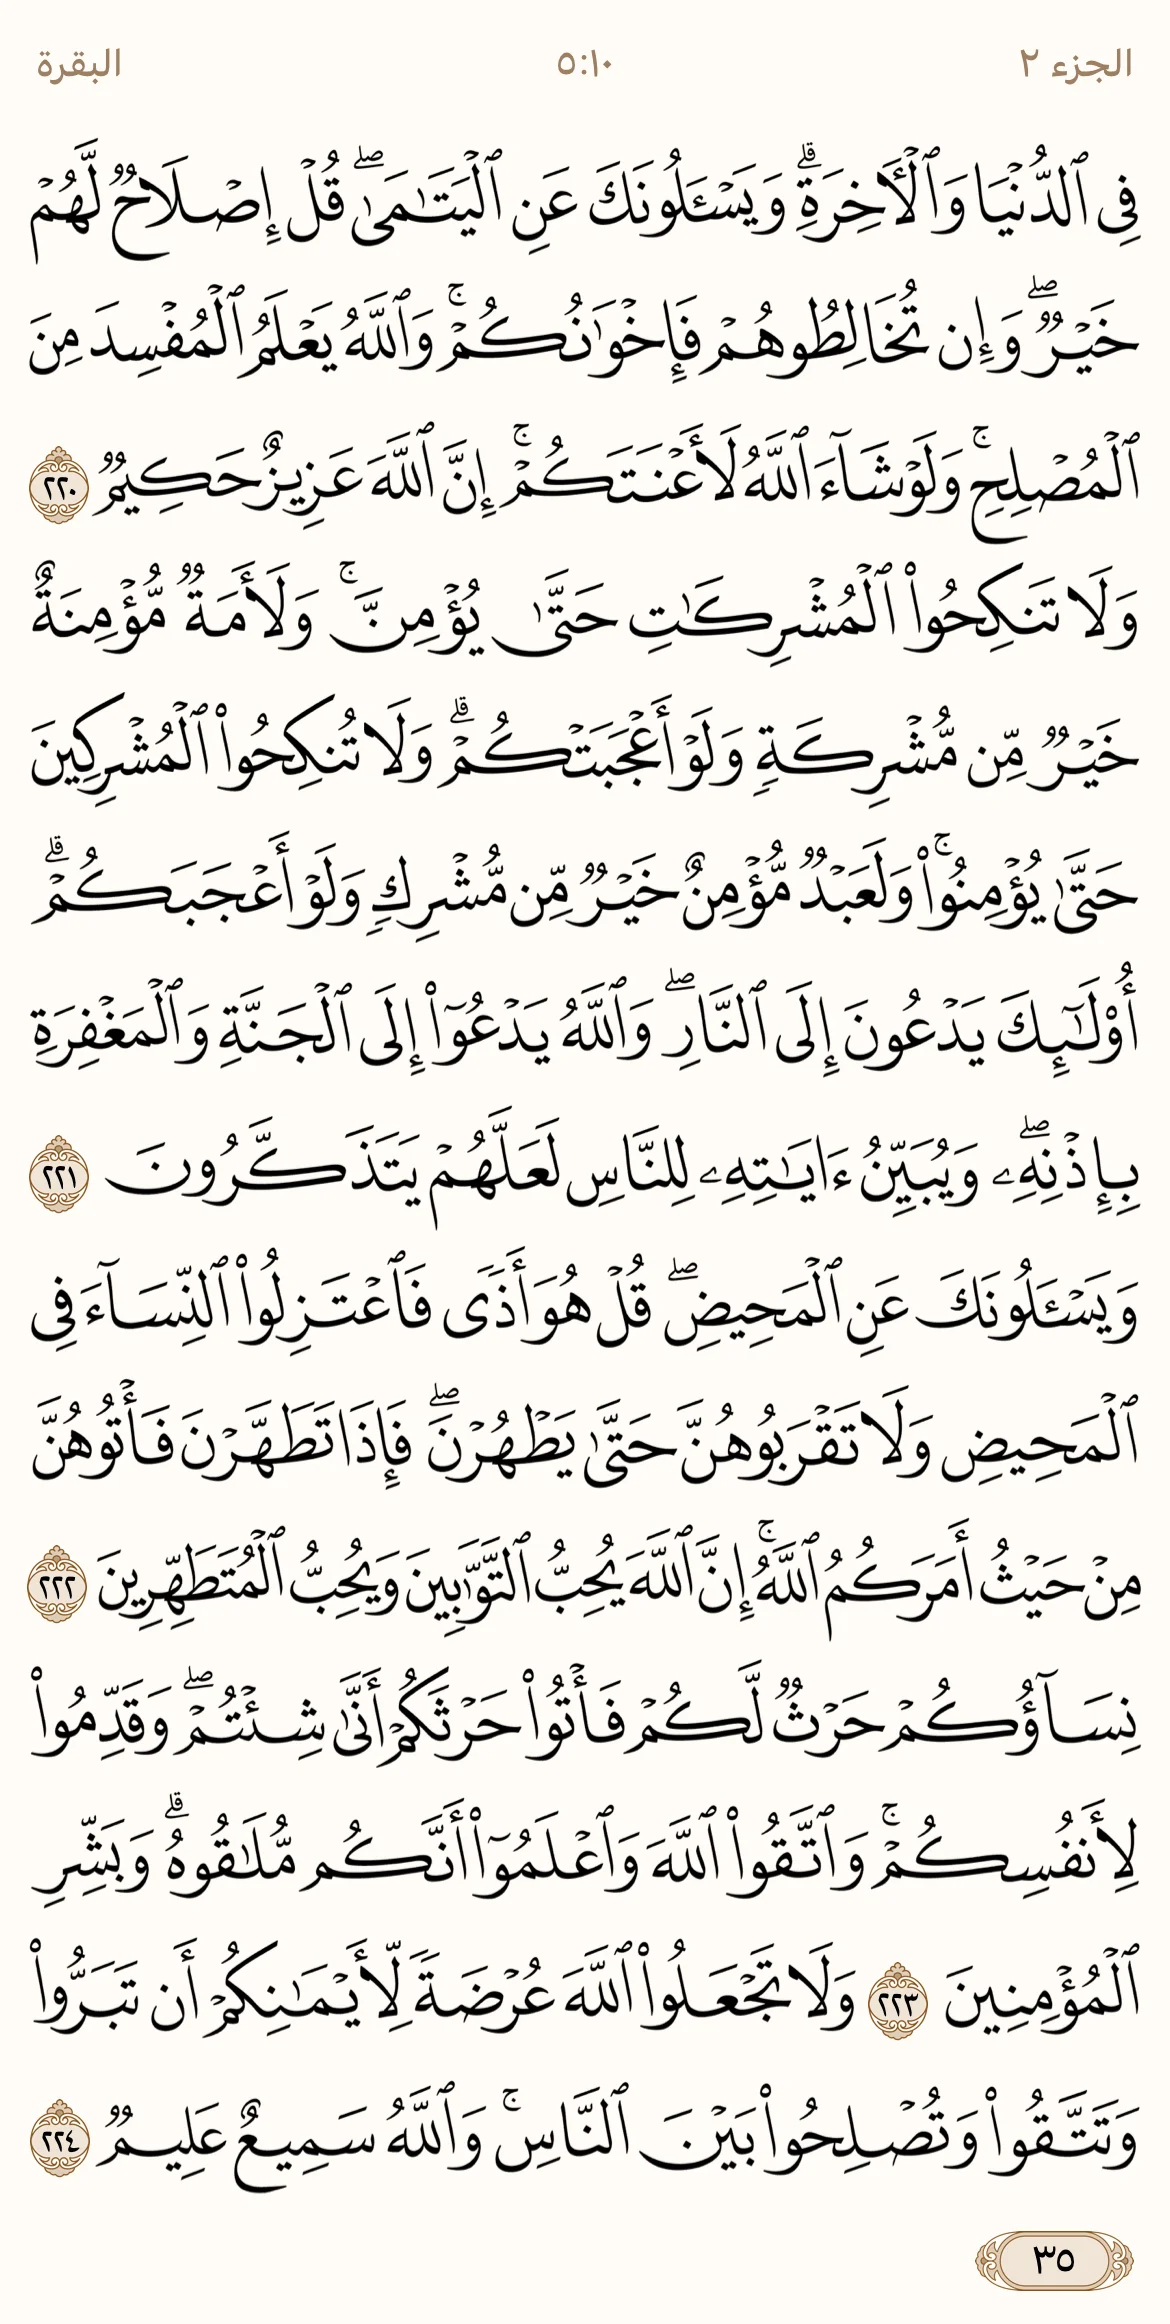 الجزء ٢ ٥:١٠ البقرة
فِي ٱلدُّنۡيَا وَٱلۡأٓخِرَةِۗ وَيَسۡـَٔلُونَكَ عَنِ ٱلۡيَتَٰمَىٰۖ قُلۡ إِصۡلَاحٞ لَّهُمۡ
خَيۡرٞۖ وَإِن تُخَالِطُوهُمۡ فَإِخۡوَٰنُكُمۡۚ وَٱللَّهُ يَعۡلَمُ ٱلۡمُفۡسِدَ مِنَ
ٱلۡمُصۡلِحِۚ وَلَوۡ شَآءَ ٱللَّهُ لَأَعۡنَتَكُمۡۚ إِنَّ ٱللَّهَ عَزِيزٌ حَكِيمٞ ٢٢٠
وَلَا تَنكِحُواْ ٱلۡمُشۡرِكَٰتِ حَتَّىٰ يُؤۡمِنَّۚ وَلَأَمَةٞ مُّؤۡمِنَةٌ
خَيۡرٞ مِّن مُّشۡرِكَةٖ وَلَوۡ أَعۡجَبَتۡكُمۡۗ وَلَا تُنكِحُواْ ٱلۡمُشۡرِكِينَ
حَتَّىٰ يُؤۡمِنُواْۚ وَلَعَبۡدٞ مُّؤۡمِنٌ خَيۡرٞ مِّن مُّشۡرِكٖ وَلَوۡ أَعۡجَبَكُمۡۗ
أُوْلَٰٓئِكَ يَدۡعُونَ إِلَى ٱلنَّارِۖ وَٱللَّهُ يَدۡعُوٓاْ إِلَى ٱلۡجَنَّةِ وَٱلۡمَغۡفِرَةِ
بِإِذۡنِهِۦۖ وَيُبَيِّنُ ءَايَٰتِهِۦ لِلنَّاسِ لَعَلَّهُمۡ يَتَذَكَّرُونَ ٢٢١
وَيَسۡـَٔلُونَكَ عَنِ ٱلۡمَحِيضِۖ قُلۡ هُوَ أَذٗى فَٱعۡتَزِلُواْ ٱلنِّسَآءَ فِي
ٱلۡمَحِيضِ وَلَا تَقۡرَبُوهُنَّ حَتَّىٰ يَطۡهُرۡنَۖ فَإِذَا تَطَهَّرۡنَ فَأۡتُوهُنَّ
مِنۡ حَيۡثُ أَمَرَكُمُ ٱللَّهُۚ إِنَّ ٱللَّهَ يُحِبُّ ٱلتَّوَّٰبِينَ وَيُحِبُّ ٱلۡمُتَطَهِّرِينَ ٢٢٢
نِسَآؤُكُمۡ حَرۡثٞ لَّكُمۡ فَأۡتُواْ حَرۡثَكُمۡ أَنَّىٰ شِئۡتُمۡۖ وَقَدِّمُواْ
لِأَنفُسِكُمۡۚ وَٱتَّقُواْ ٱللَّهَ وَٱعۡلَمُوٓاْ أَنَّكُم مُّلَٰقُوهُۗ وَبَشِّرِ
ٱلۡمُؤۡمِنِينَ ٢٢٣ وَلَا تَجۡعَلُواْ ٱللَّهَ عُرۡضَةٗ لِّأَيۡمَٰنِكُمۡ أَن تَبَرُّواْ
وَتَتَّقُواْ وَتُصۡلِحُواْ بَيۡنَ ٱلنَّاسِۚ وَٱللَّهُ سَمِيعٌ عَلِيمٞ ٢٢٤
٣٥